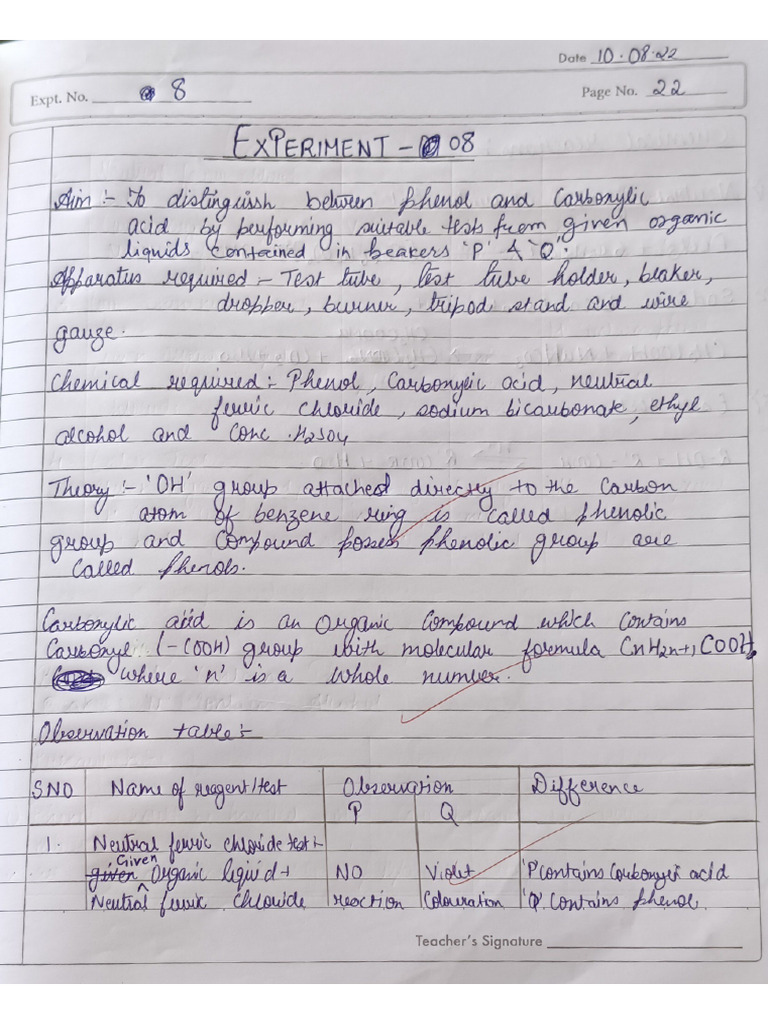 Date 10.08.22
Expt. No. 8
Page No. 22
EXPERIMENT - 08
Aim :- To distinguish between phenol and Carboxylic
acid by performing suitable tests from given organic
liquids contained in beakers 'P' & 'Q'.
Apparatus required :- Test tube, test tube holder, beaker,
dropper, burner, tripod stand and wire
gauze.
Chemical required :- Phenol, Carboxylic acid, neutral
ferric chloride, sodium bicarbonate, ethyl
alcohol and Conc. H2SO4
Theory :- 'OH' group attached directly to the Carbon
atom of benzene ring is called phenolic
group and Compound posses phenolic group are
Called phenols.
Carboxylic acid is an Organic Compound which Contains
Carboxyl (-COOH) group with molecular formula CnH2n+1 COOH.
where 'n' is a whole number.
Observation table :-
SNO Name of reagent/test Observation Difference
P Q
1. Neutral ferric chloride test :-
Given
given Organic liquid + NO Violet 'P' Contains Carboxylic acid
Neutral ferric chloride reaction Colouration 'Q' Contains phenol.
Teacher's Signature